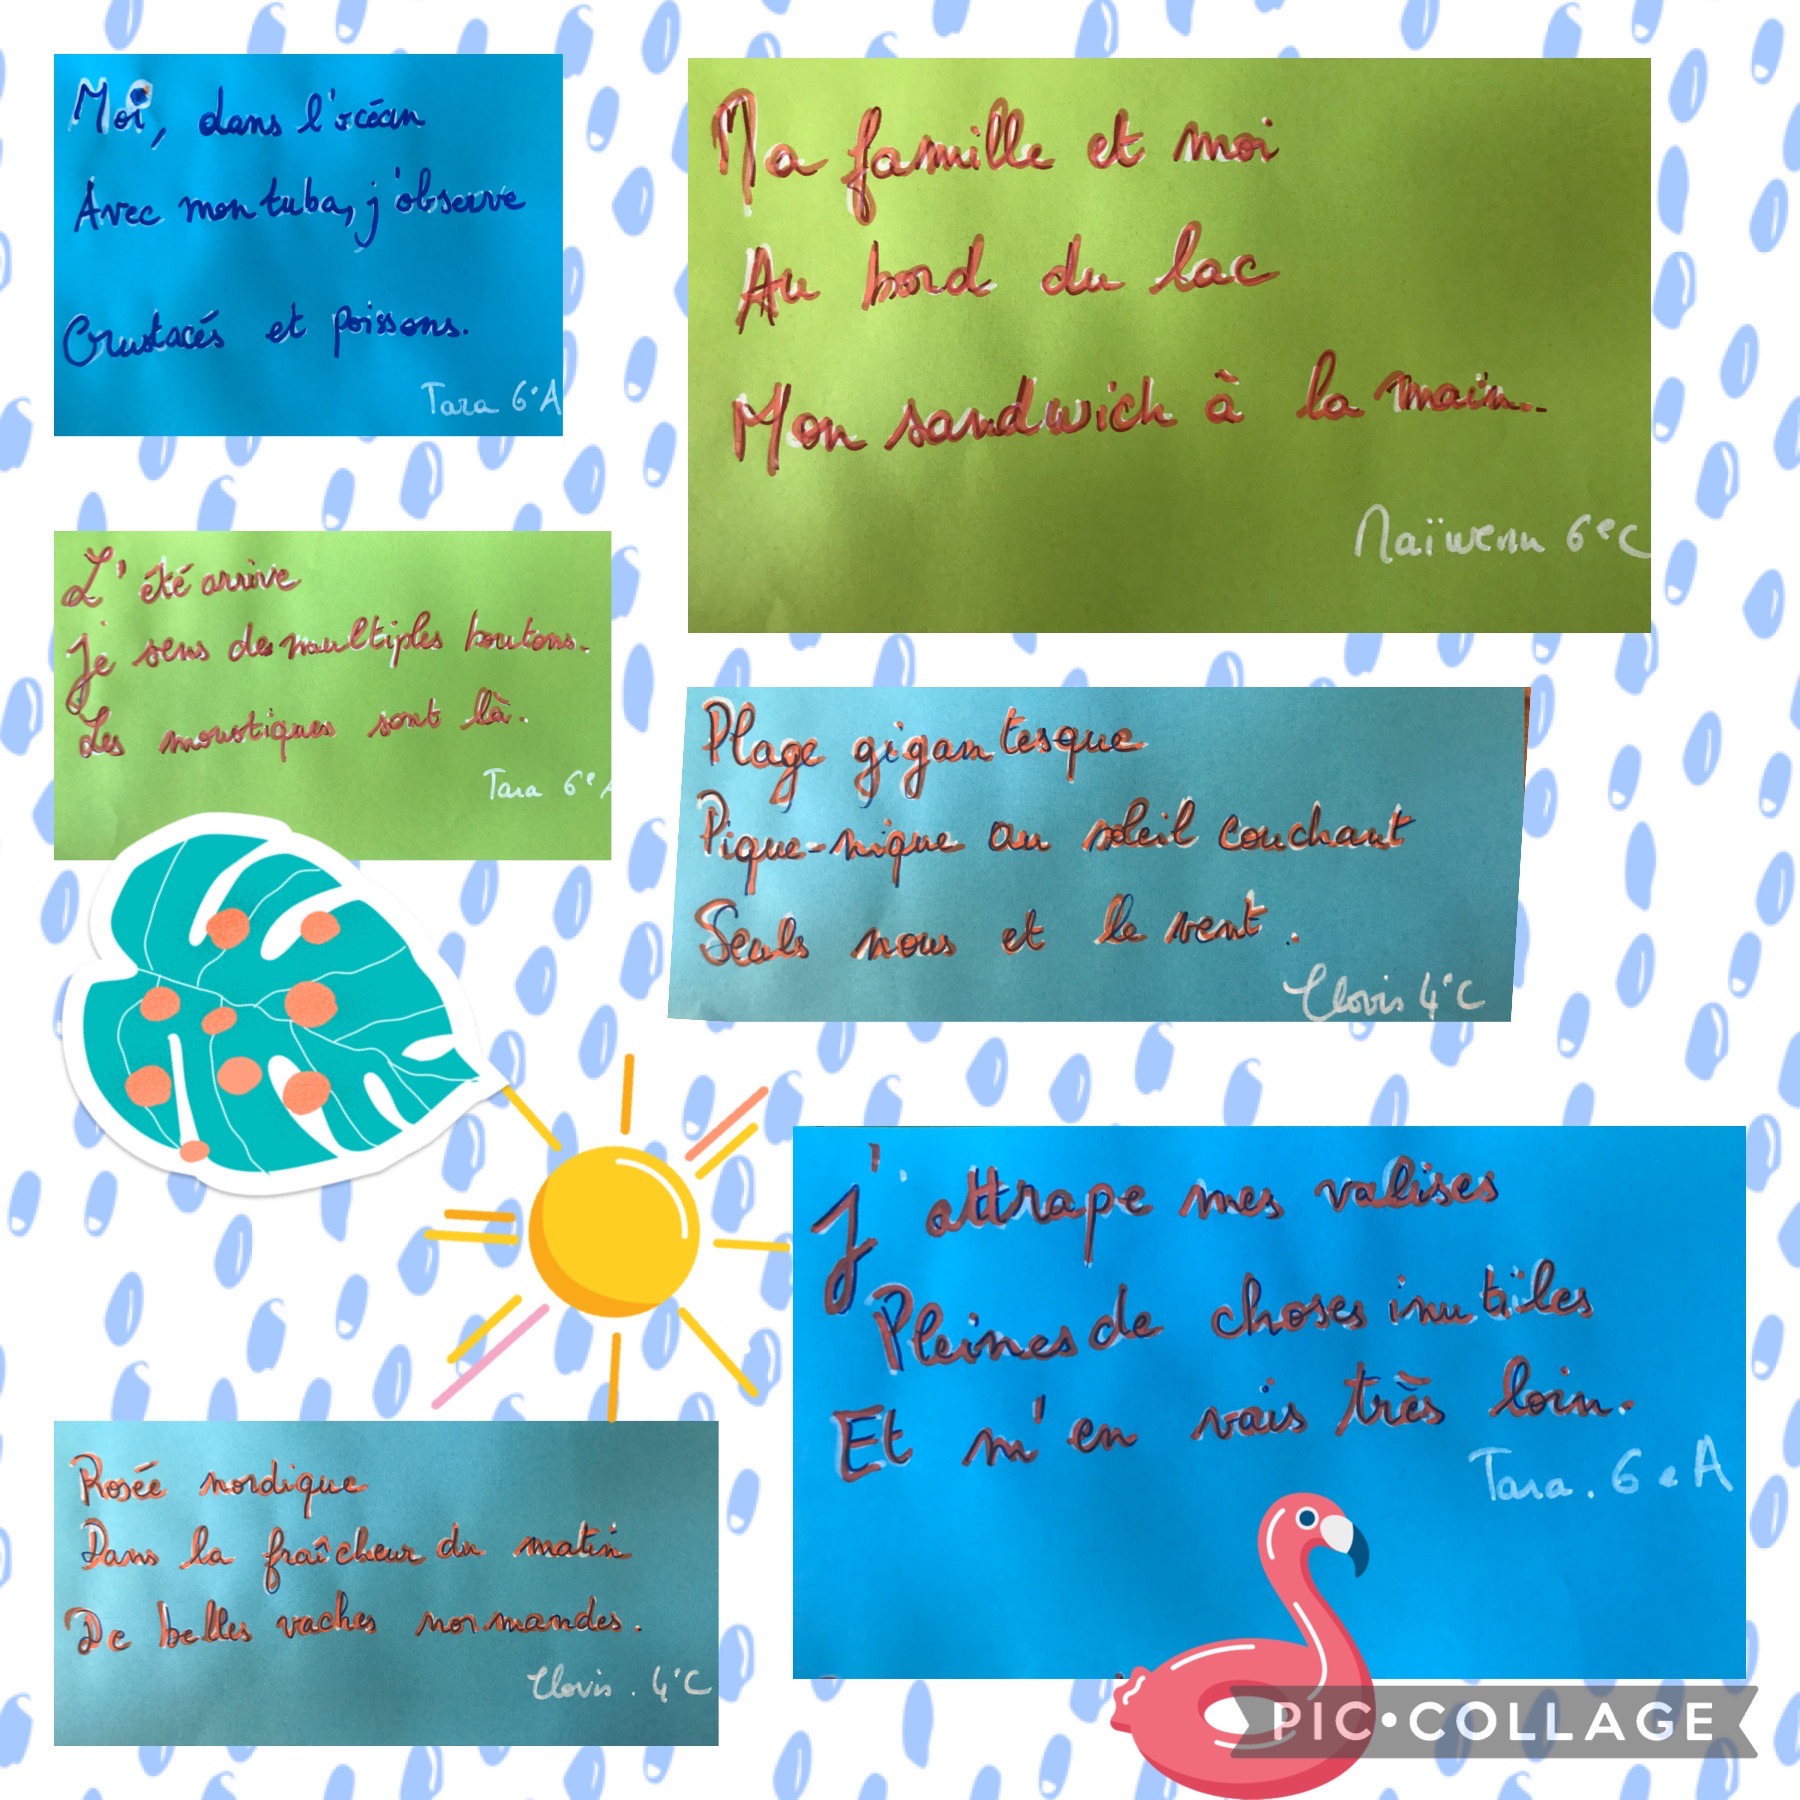 Moi, dans l'océan
Avec mon tuba, j'observe
Crustacés et poissons.
Tara 6°A
Ma famille et moi
Au bord du lac
Mon sandwich à la main...
Naïwenn 6eC
L'été arrive
Je sens de multiples boutons.
Les moustiques sont là.
Tara 6e A
Plage gigantesque
Pique-nique au soleil couchant
Seuls nous et le vent.
Clovis 4°C
J'attrape mes valises
Pleines de choses inutiles
Et m'en vais très loin.
Tara. 6eA
Rosée nordique
Dans la fraîcheur du matin
De belles vaches normandes.
Clovis. 4°C
PIC•COLLAGE